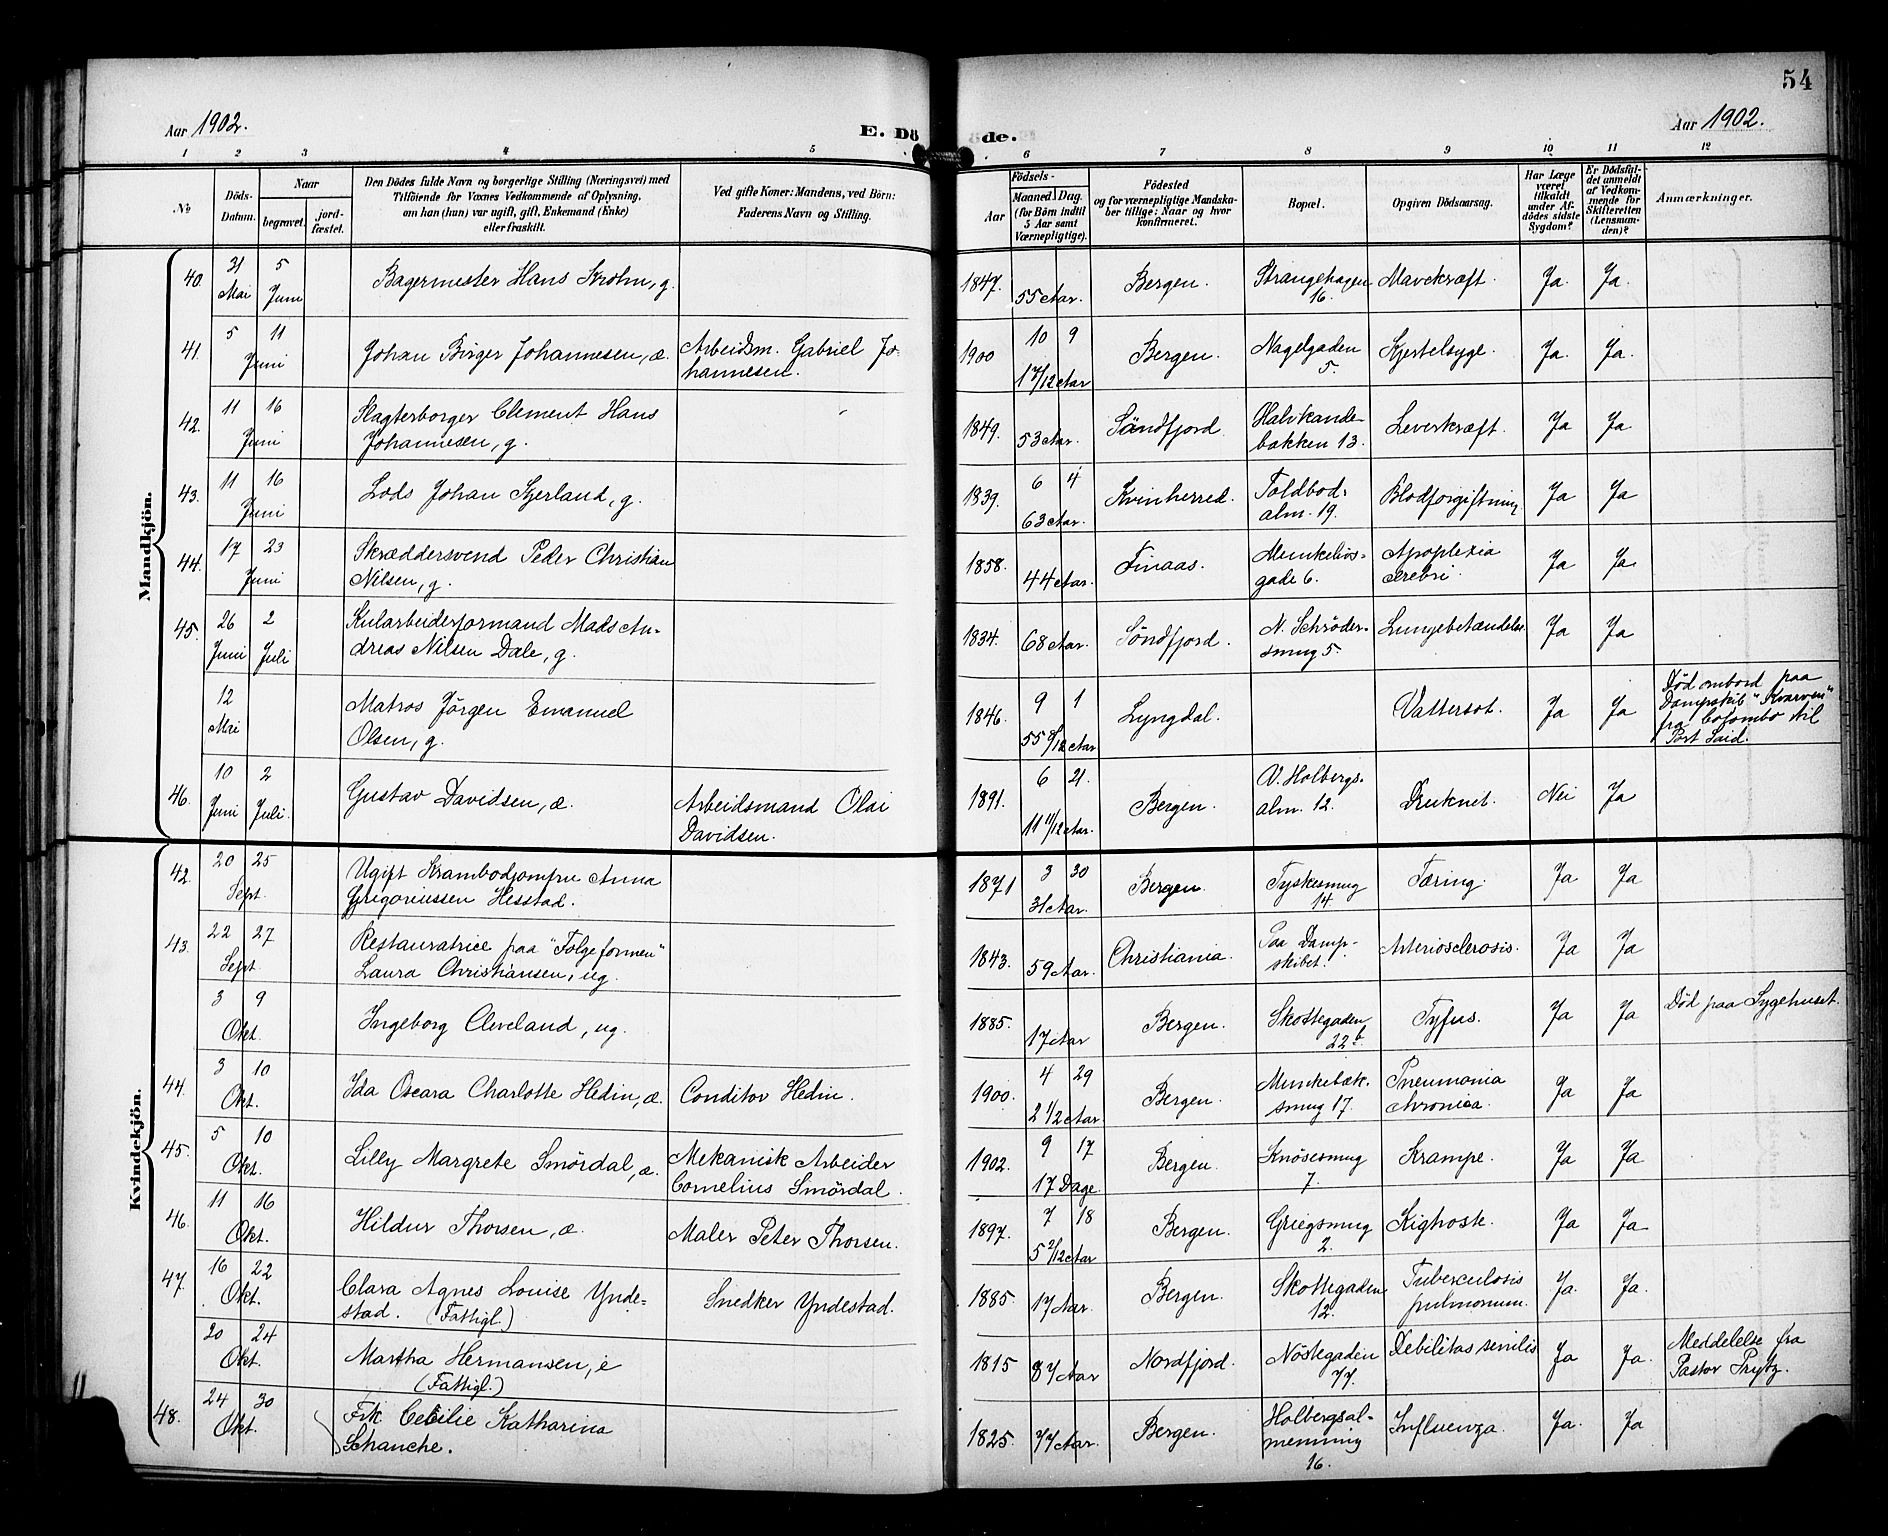 54
Aar 1902.
E. Dö
de.
Aar 1902.
1 2 3 4 5 6 7 8 9 10 11 12
No
Döds-Datum.
Naar
begravet.
jord-fæstet.
Den Dödes fulde Navn og borgerlige Stilling (Næringsvei) med
Tilföiende for Voxnes Vedkommende af Oplysning,
om han (hun) var ugift, gift, Enkemand (Enke)
eller fraskilt.
Ved gifte Koner: Mandens, ved Börn:
Faderens Navn og Stilling.
Födsels-
Aar
Maaned. Dag.
(for Börn indtil
5 Aar samt
Værnepligtige).
Födested
og for værnepligtige Mandska-
ber tillige: Naar og hvor
konfirmeret.
Bopæl.
Opgiven Dödsaarsag.
Har Læge
været
tilkaldt
under Af-
dödes sidste
Sygdom?
Er Dödsfal-
det anmeldt
af Vedkom-
mende for
Skifteretten
(Lensman-
den)?
Anmærkninger.
Mandkjön.
40. 31 Mai 5 Juni Bagermester Hans Krohn, g. 1847. 55 Aar. Bergen. Strangehagen 16. Mavekræft. Ja. Ja.
41. 5 11 Juni Johan Birger Johannesen, æ. Arbeidsm. Gabriel Jo-
hannesen. 1900 10 9 1 7/12 Aar Bergen. Nagelgaden 5. Kjertelsyge. Ja. Ja.
42. 11 16 Juni Slagterborger Clement Hans
Johannesen, g. 1849. 53 Aar. Söndfjord Halvkande-
bakken 13. Leverkræft. Ja Ja
43. 11 16 Juni Lods Johan Skjerland, g. 1839. 6 4 63 Aar. Kvinherred. Toldbod-
alm. 19. Blodforgiftning Ja Ja
44. 17 23 Juni Skræddersvend Peder Christian
Nilsen, g. 1858. 44 Aar. Finaas. Munkelivs-
gade 6. Apoplexia
cerebri. Ja Ja
45. 26 Juni 2 Juli Kularbeiderformand Mads An-
dreas Nilsen Dale, g. 1834. 68 Aar. Söndfjord. N. Schrøder-
smug 5. Lungebetændelse Ja Ja
12 Mai Matros Jörgen Emanuel
Olsen, g. 1846. 9 1 55 8/12 Aar Lyngdal. Vattersot. Ja Ja Död ombord paa
Dampskib "Kvarven"
fra Colombo til
Port Said.
46. 10 Juni 2 Juli. Gustav Davidsen, æ. Arbeidsmand Olai
Davidsen. 1891. 6 21. 11 11/12 Aar. Bergen. V. Holbergs-
alm. 12. Druknet. Nei Ja
Kvindekjön.
42. 20 25 Sept. Ugift Krambodjomfru Anna
Grigoriussen Hesstad. 1871 3 30 31 Aar. Bergen. Tyskesmug
14. Tæring. Ja Ja
43. 22 27 Sept. Restauratrice paa "Folgefonnen"
Laura Christiansen, ug. 1843. 59 Aar. Christiania. Paa Damp-
skibet. Arteriosclerosis. Ja Ja
3 9 Okt. Ingeborg Cleveland, ug. 1885. 17 Aar Bergen. Skottegaden
22 b. Tyfus. Ja Ja Död paa Sygehuset.
44. 3 10 Okt. Ida Oscara Charlotte Hedin, æ. Conditor Hedin. 1900. 4 29 2 1/2 Aar Bergen. Munkebæk-
smug 17. Pneumonia
chronica. Ja Ja
45. 5 10 Okt. Lilly Margrete Smördal, æ. Mekanisk Arbeider
Cornelius Smördal. 1902. 9 17 17 Dage. Bergen. Knösesmug
7. Krampe. Ja Ja
46. 11 16 Okt. Hildur Thorsen, æ. Maler Peter Thorsen. 1897. 7 18 5 2/12 Aar Bergen. Griegsmug
2. Kighoste. Ja Ja
47. 16 22 Okt. Clara Agnes Louise Ynde-
stad. (Fattigl.) Snedker Yndestad. 1885. 17 Aar. Bergen. Skottegaden
12. Tuberculosis
pulmonum. Ja. Ja.
20 24 Okt. Martha Hermansen, e
(Fattigl.) 1815 87 Aar Nordfjord. Nöstegaden
77. Debilitas senilis Ja Ja. Meddelelse fra
Pastor Prytz.
48. 24 30 Okt. Frk Cecilie Katharina
Schanche. 1825. 77 Aar. Bergen. Holbergsal-
menning
16. Influenza. Ja. Ja